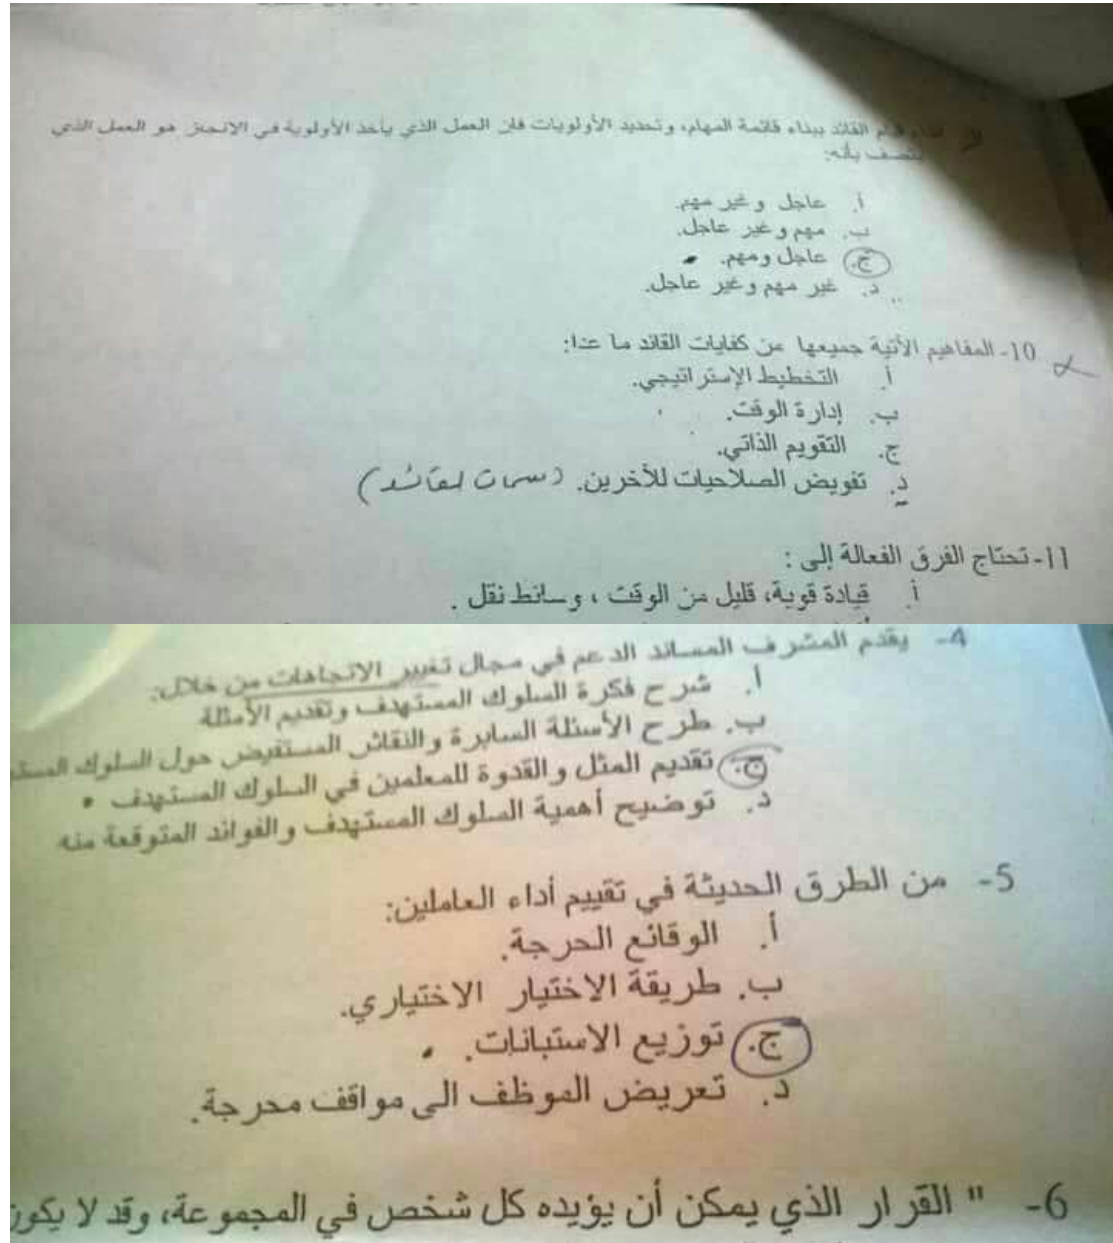 قيام القائد ببناء قائمة المهام، وتحديد الأولويات فان العمل الذي يأخذ الأولوية في الانجاز هو العمل الذي
يتصف بأنه:
أ. عاجل وغير مهم.
ب. مهم وغير عاجل.
ج. عاجل ومهم.
د. غير مهم وغير عاجل.
10- المفاهيم الآتية جميعها من كفايات القائد ما عدا:
أ. التخطيط الإستراتيجي.
ب. إدارة الوقت.
ج. التقويم الذاتي.
د. تفويض الصلاحيات للأخرين. (سمات لقائد)
11- تحتاج الفرق الفعالة إلى :
أ. قيادة قوية، قليل من الوقت ، وسائط نقل .
4- يقدم المشرف المساند الدعم في مجال تغيير الاتجاهات من خلال:
أ. شرح فكرة السلوك المستهدف وتقديم الأمثلة
ب. طرح الأسئلة السابرة والنقاش المستفيض حول السلوك
ج. تقديم المثل والقدوة للمعلمين في السلوك المستهدف
د. توضيح أهمية السلوك المستهدف والفوائد المتوقعة منه
5- من الطرق الحديثة في تقييم أداء العاملين:
أ. الوقائع الحرجة.
ب. طريقة الاختيار الاختياري.
ج. توزيع الاستبانات.
د. تعريض الموظف الى مواقف محرجة.
6- " القرار الذي يمكن أن يؤيده كل شخص في المجموعة، وقد لا يكون